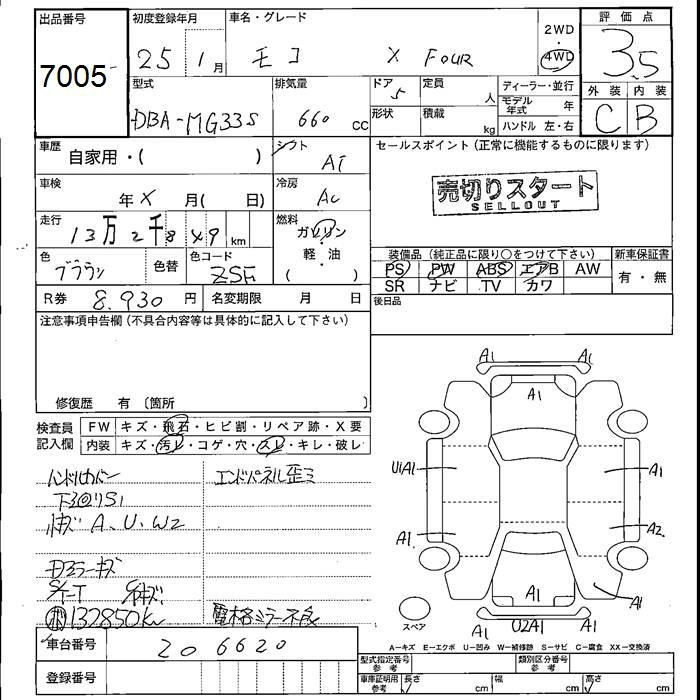 出品番号
7005
初度登録年月
25 1月
車名・グレード
モコ X FOUR
2WD
4WD
評価点
3.5
型式
DBA-MG33S
排気量
660 CC
ドア 5
形状
定員
人
積載
kg
ディーラー・並行
モデル年式 年
ハンドル 左・右
外装 内装
C B
車歴
自家用・( )
シフト
AT
車検
年 X 月( 日)
冷房
AC
走行
13万2千849 km
燃料
ガソリン
軽・油
( )
色
ブラウン
色替
色コード
R券 8,930円
名変期限 月 日
セールスポイント(正常に機能するものに限ります)
売切りスタート
SELLOUT
装備品(純正品に限り○をつけて下さい)
新車保証書
PS PW ABS エアB AW
SR ナビ TV カワ
有・無
後日品
注意事項申告欄(不具合内容等は具体的に記入して下さい)
修復歴 有〔箇所 〕
検査員記入欄
FW キズ・飛石・ヒビ割・リペア跡・X要
内装 キズ・汚レ・コゲ・穴・スレ・キレ・破レ
ハンドルカバー
エンドパネル歪ミ
A、U、W2
132850Km
電格ミラー不良
車台番号
206620
登録番号
A1 A1
A1
U1A1
A1
A1
A2
A1
A1
スペア
A1
U2A1
A1
A−キズ E−エクボ U−凹み W−補修跡 S−サビ C−腐食 XX−交換済
型式指定番号 参考
類別区分番号 参考
車庫証明用 参考
長さ cm
幅 cm
高さ cm